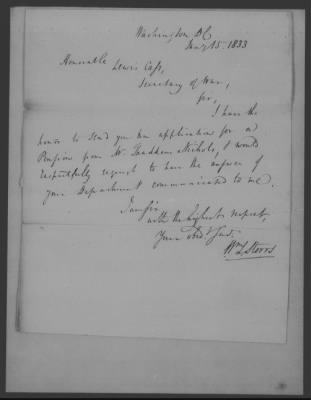 Washington DC
Jany 15. 1833
Honorable Lewis Cass,
Secretary of War,
Sir,
I have the
honor to send you an application for a
Pension from Mr. Nichols, & would
respectfully request to have the answer of
your Department communicated to me.
I am Sir,
with the highest respect,
Your obdt. Servt.
Wm L Storrs